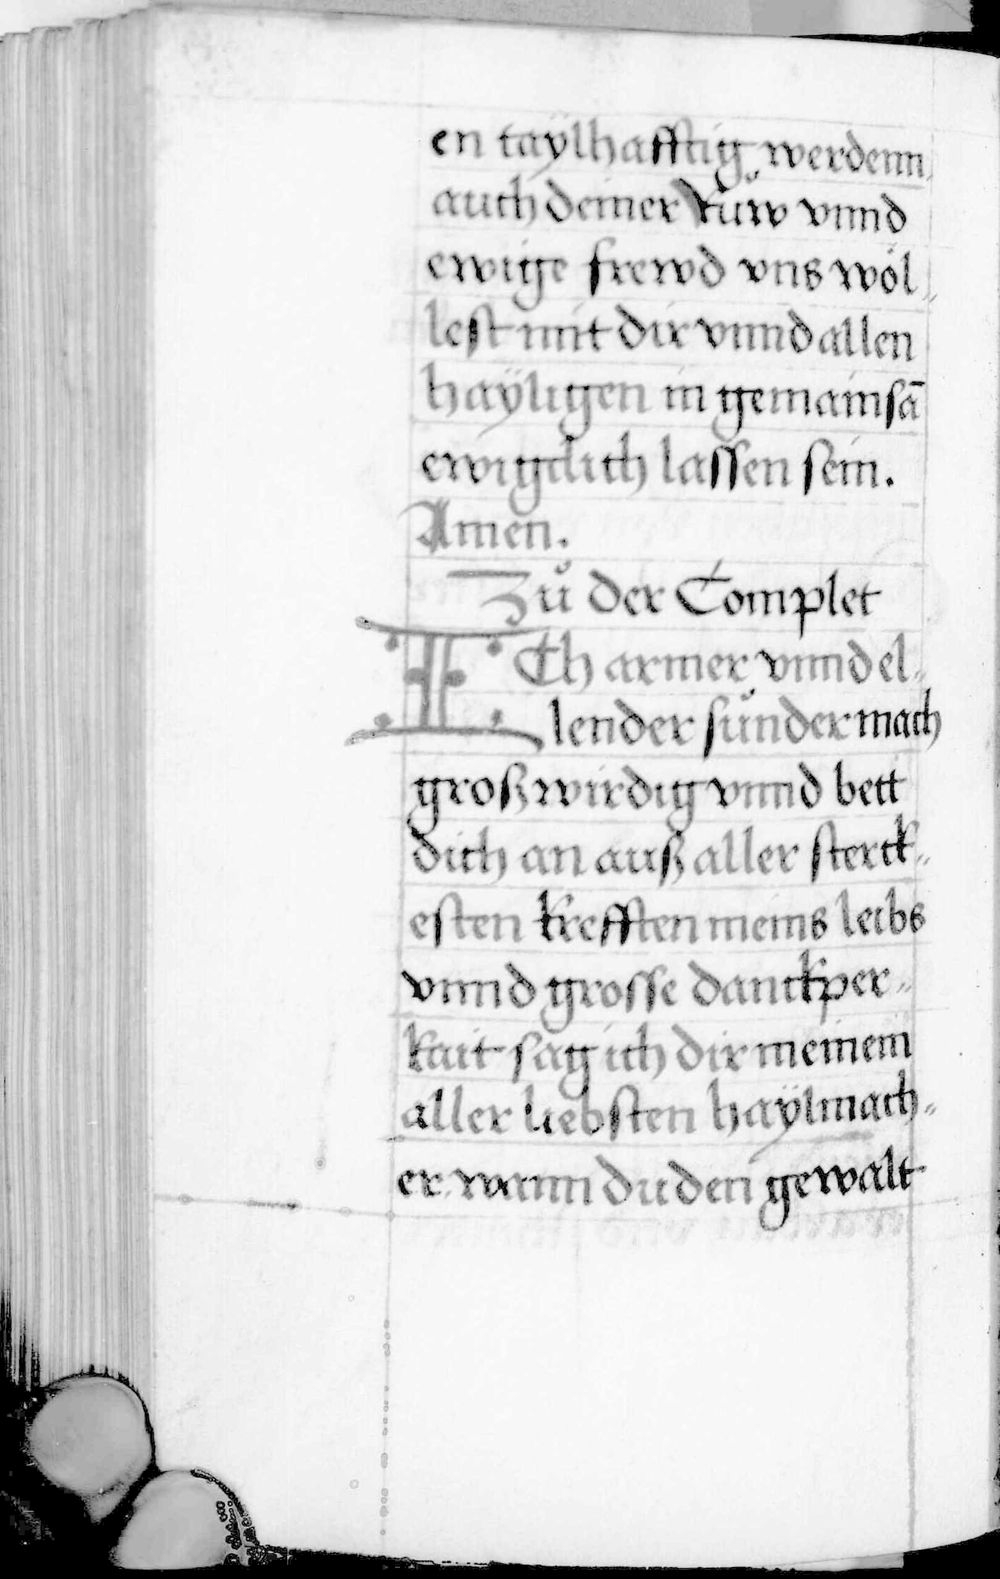 en taÿlhafftig werdenn
auch deiner Rŭw vnnd
ewige frewd vns wöl„
lest mit dir vnnd allen
haÿligen in gemainsā
ewigclich lassen sein.
Amen.
Zů der Complet
ICh armer vnnd el„
lender sünder mach
groß wirdig vnnd bett
dich an auß aller sterck„
esten krefften meins leibs
vnnd grosse danckper„
kait sag ich dir meinem
aller liebsten haÿlmach„
er. wann du den gewalt